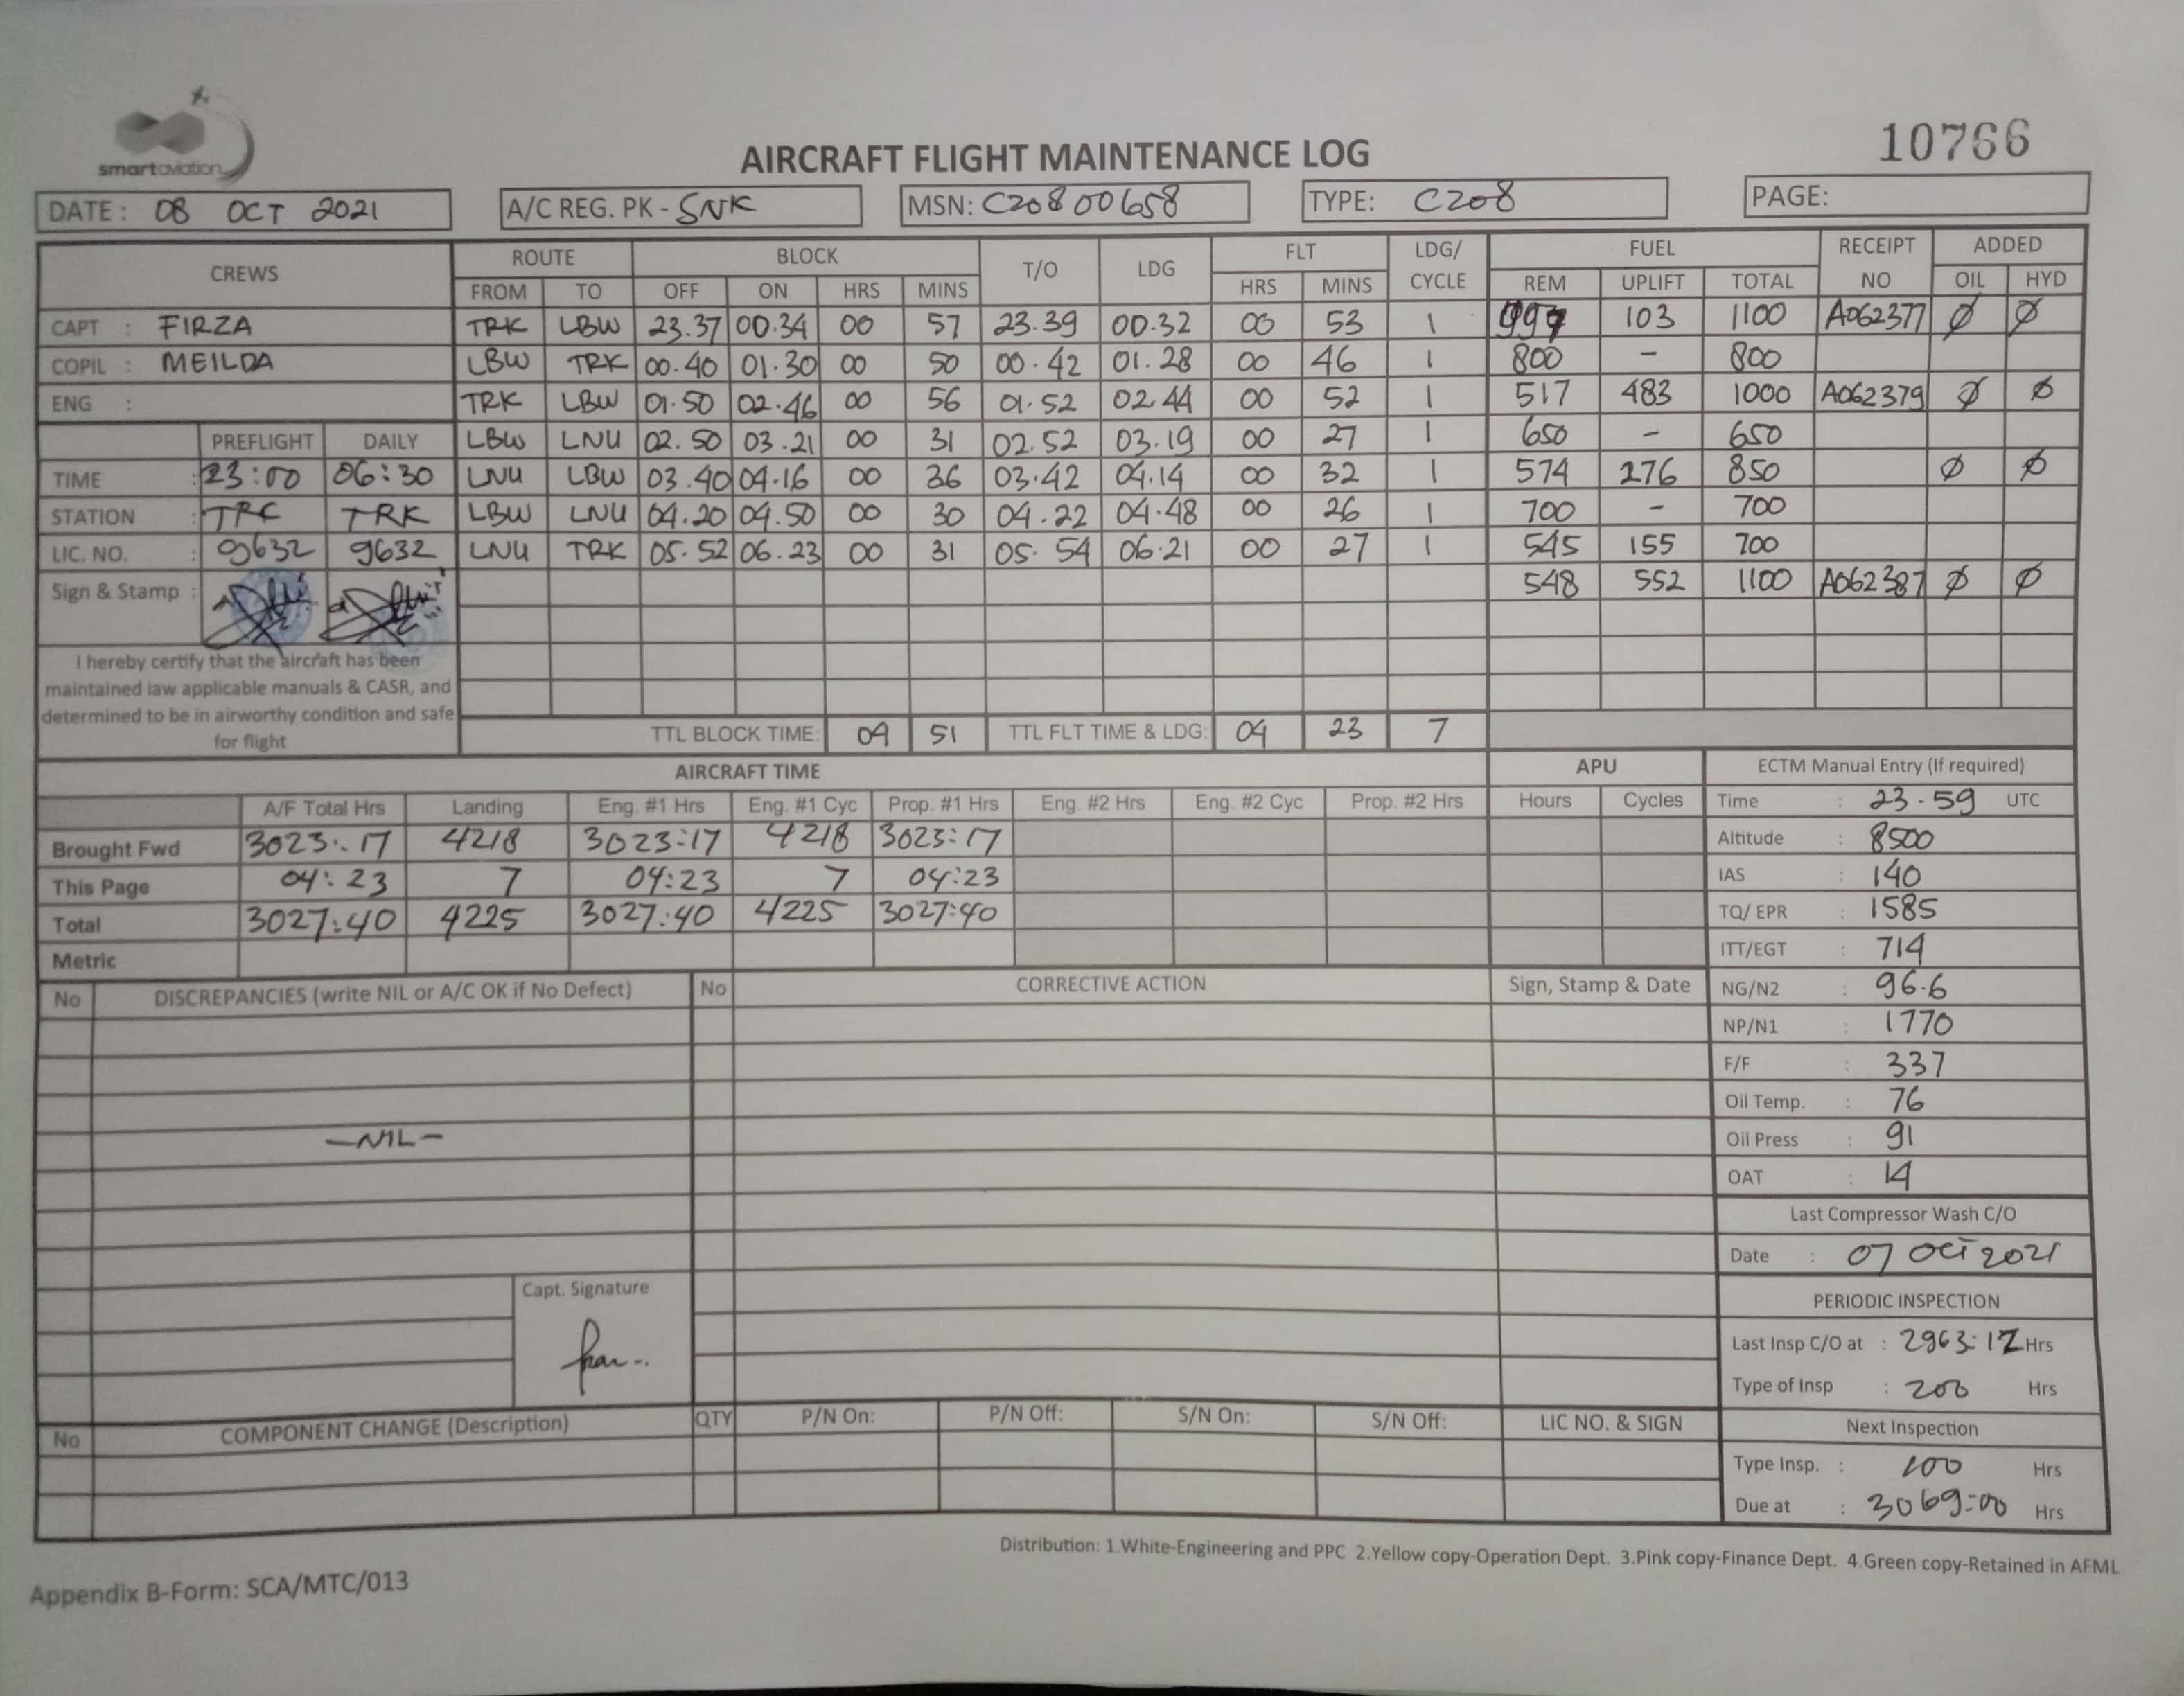 smartaviation
10766
AIRCRAFT FLIGHT MAINTENANCE LOG
DATE : 08 OCT 2021 A/C REG. PK - SNK MSN: C20800658 TYPE: C208 PAGE:
CREWS ROUTE BLOCK T/O LDG FLT LDG/ CYCLE FUEL RECEIPT NO ADDED
FROM TO OFF ON HRS MINS HRS MINS REM UPLIFT TOTAL OIL HYD
CAPT : FIRZA TRK LBW 23.37 00.34 00 57 23.39 00.32 00 53 1 997 103 1100 A062377 Ø Ø
COPIL : MEILDA LBW TRK 00.40 01.30 00 50 00.42 01.28 00 46 1 800 - 800
ENG : TRK LBW 01.50 02.46 00 56 01.52 02.44 00 52 1 517 483 1000 A062379 Ø Ø
PREFLIGHT DAILY LBW LNU 02.50 03.21 00 31 02.52 03.19 00 27 1 650 - 650
TIME : 23:00 06:30 LNU LBW 03.40 04.16 00 36 03.42 04.14 00 32 1 574 276 850 Ø Ø
STATION : TRK TRK LBW LNU 04.20 04.50 00 30 04.22 04.48 00 26 1 700 - 700
LIC. NO. : 9632 9632 LNU TRK 05.52 06.23 00 31 05.54 06.21 00 27 1 545 155 700
Sign & Stamp : 548 552 1100 A062387 Ø Ø
I hereby certify that the aircraft has been
maintained iaw applicable manuals & CASR, and
determined to be in airworthy condition and safe
for flight
TTL BLOCK TIME: 04 51 TTL FLT TIME & LDG: 04 23 7
AIRCRAFT TIME APU ECTM Manual Entry (If required)
A/F Total Hrs Landing Eng. #1 Hrs Eng. #1 Cyc Prop. #1 Hrs Eng. #2 Hrs Eng. #2 Cyc Prop. #2 Hrs Hours Cycles Time : 23-59 UTC
Brought Fwd 3023:17 4218 3023:17 4218 3023:17 Altitude : 8500
This Page 04:23 7 04:23 7 04:23 IAS : 140
Total 3027:40 4225 3027:40 4225 3027:40 TQ/ EPR : 1585
Metric ITT/EGT : 714
No DISCREPANCIES (write NIL or A/C OK if No Defect) No CORRECTIVE ACTION Sign, Stamp & Date NG/N2 : 96.6
NP/N1 : 1770
F/F : 337
Oil Temp. : 76
-NIL- Oil Press : 91
OAT : 14
Last Compressor Wash C/O
Date : 07 Oct 2021
Capt. Signature
PERIODIC INSPECTION
Last Insp C/O at : 2963:17 Hrs
Type of Insp : 200 Hrs
No COMPONENT CHANGE (Description) QTY P/N On: P/N Off: S/N On: S/N Off: LIC NO. & SIGN Next Inspection
Type Insp. : 100 Hrs
Due at : 3069:00 Hrs
Distribution: 1.White-Engineering and PPC 2.Yellow copy-Operation Dept. 3.Pink copy-Finance Dept. 4.Green copy-Retained in AFML
Appendix B-Form: SCA/MTC/013